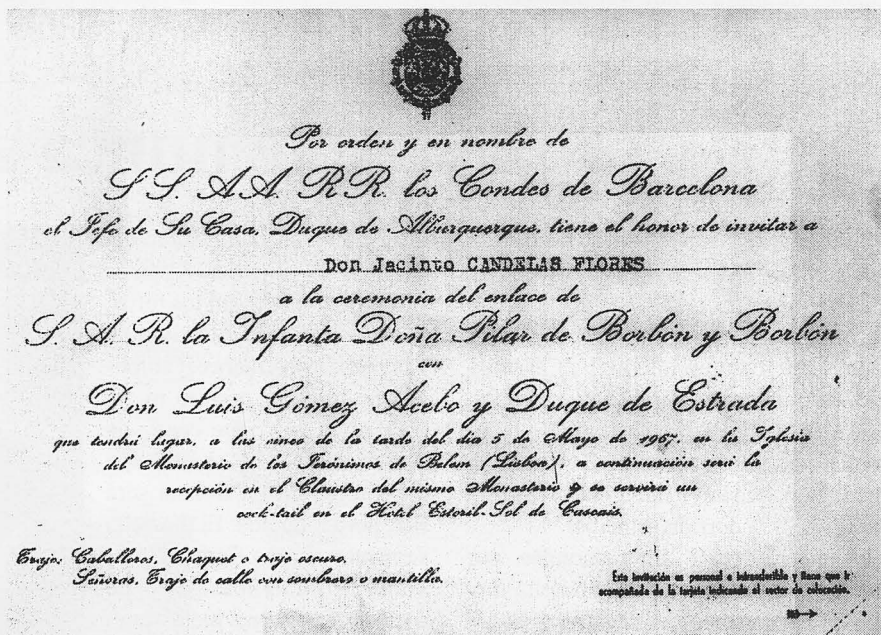 Por orden y en nombre de
S S. A A. R R. los Condes de Barcelona
el Jefe de Su Casa, Duque de Alburquerque, tiene el honor de invitar a
Don Jacinto CANDELAS FLORES
a la ceremonia del enlace de
S. A. R. la Infanta Doña Pilar de Borbón y Borbón
con
Don Luis Gómez Acebo y Duque de Estrada
que tendrá lugar, a las cinco de la tarde del día 5 de Mayo de 1967, en la Iglesia
del Monasterio de los Jerónimos de Belem (Lisboa), a continuación será la
recepción en el Claustro del mismo Monasterio y se servirá un
cock-tail en el Hotel Estoril-Sol de Cascais.
Traje: Caballeros, Chaquet o traje oscuro.
Señoras, Traje de calle con sombrero o mantilla.
Esta invitación es personal e intransferible y tiene que ir
acompañada de la tarjeta indicando el sector de colocación.